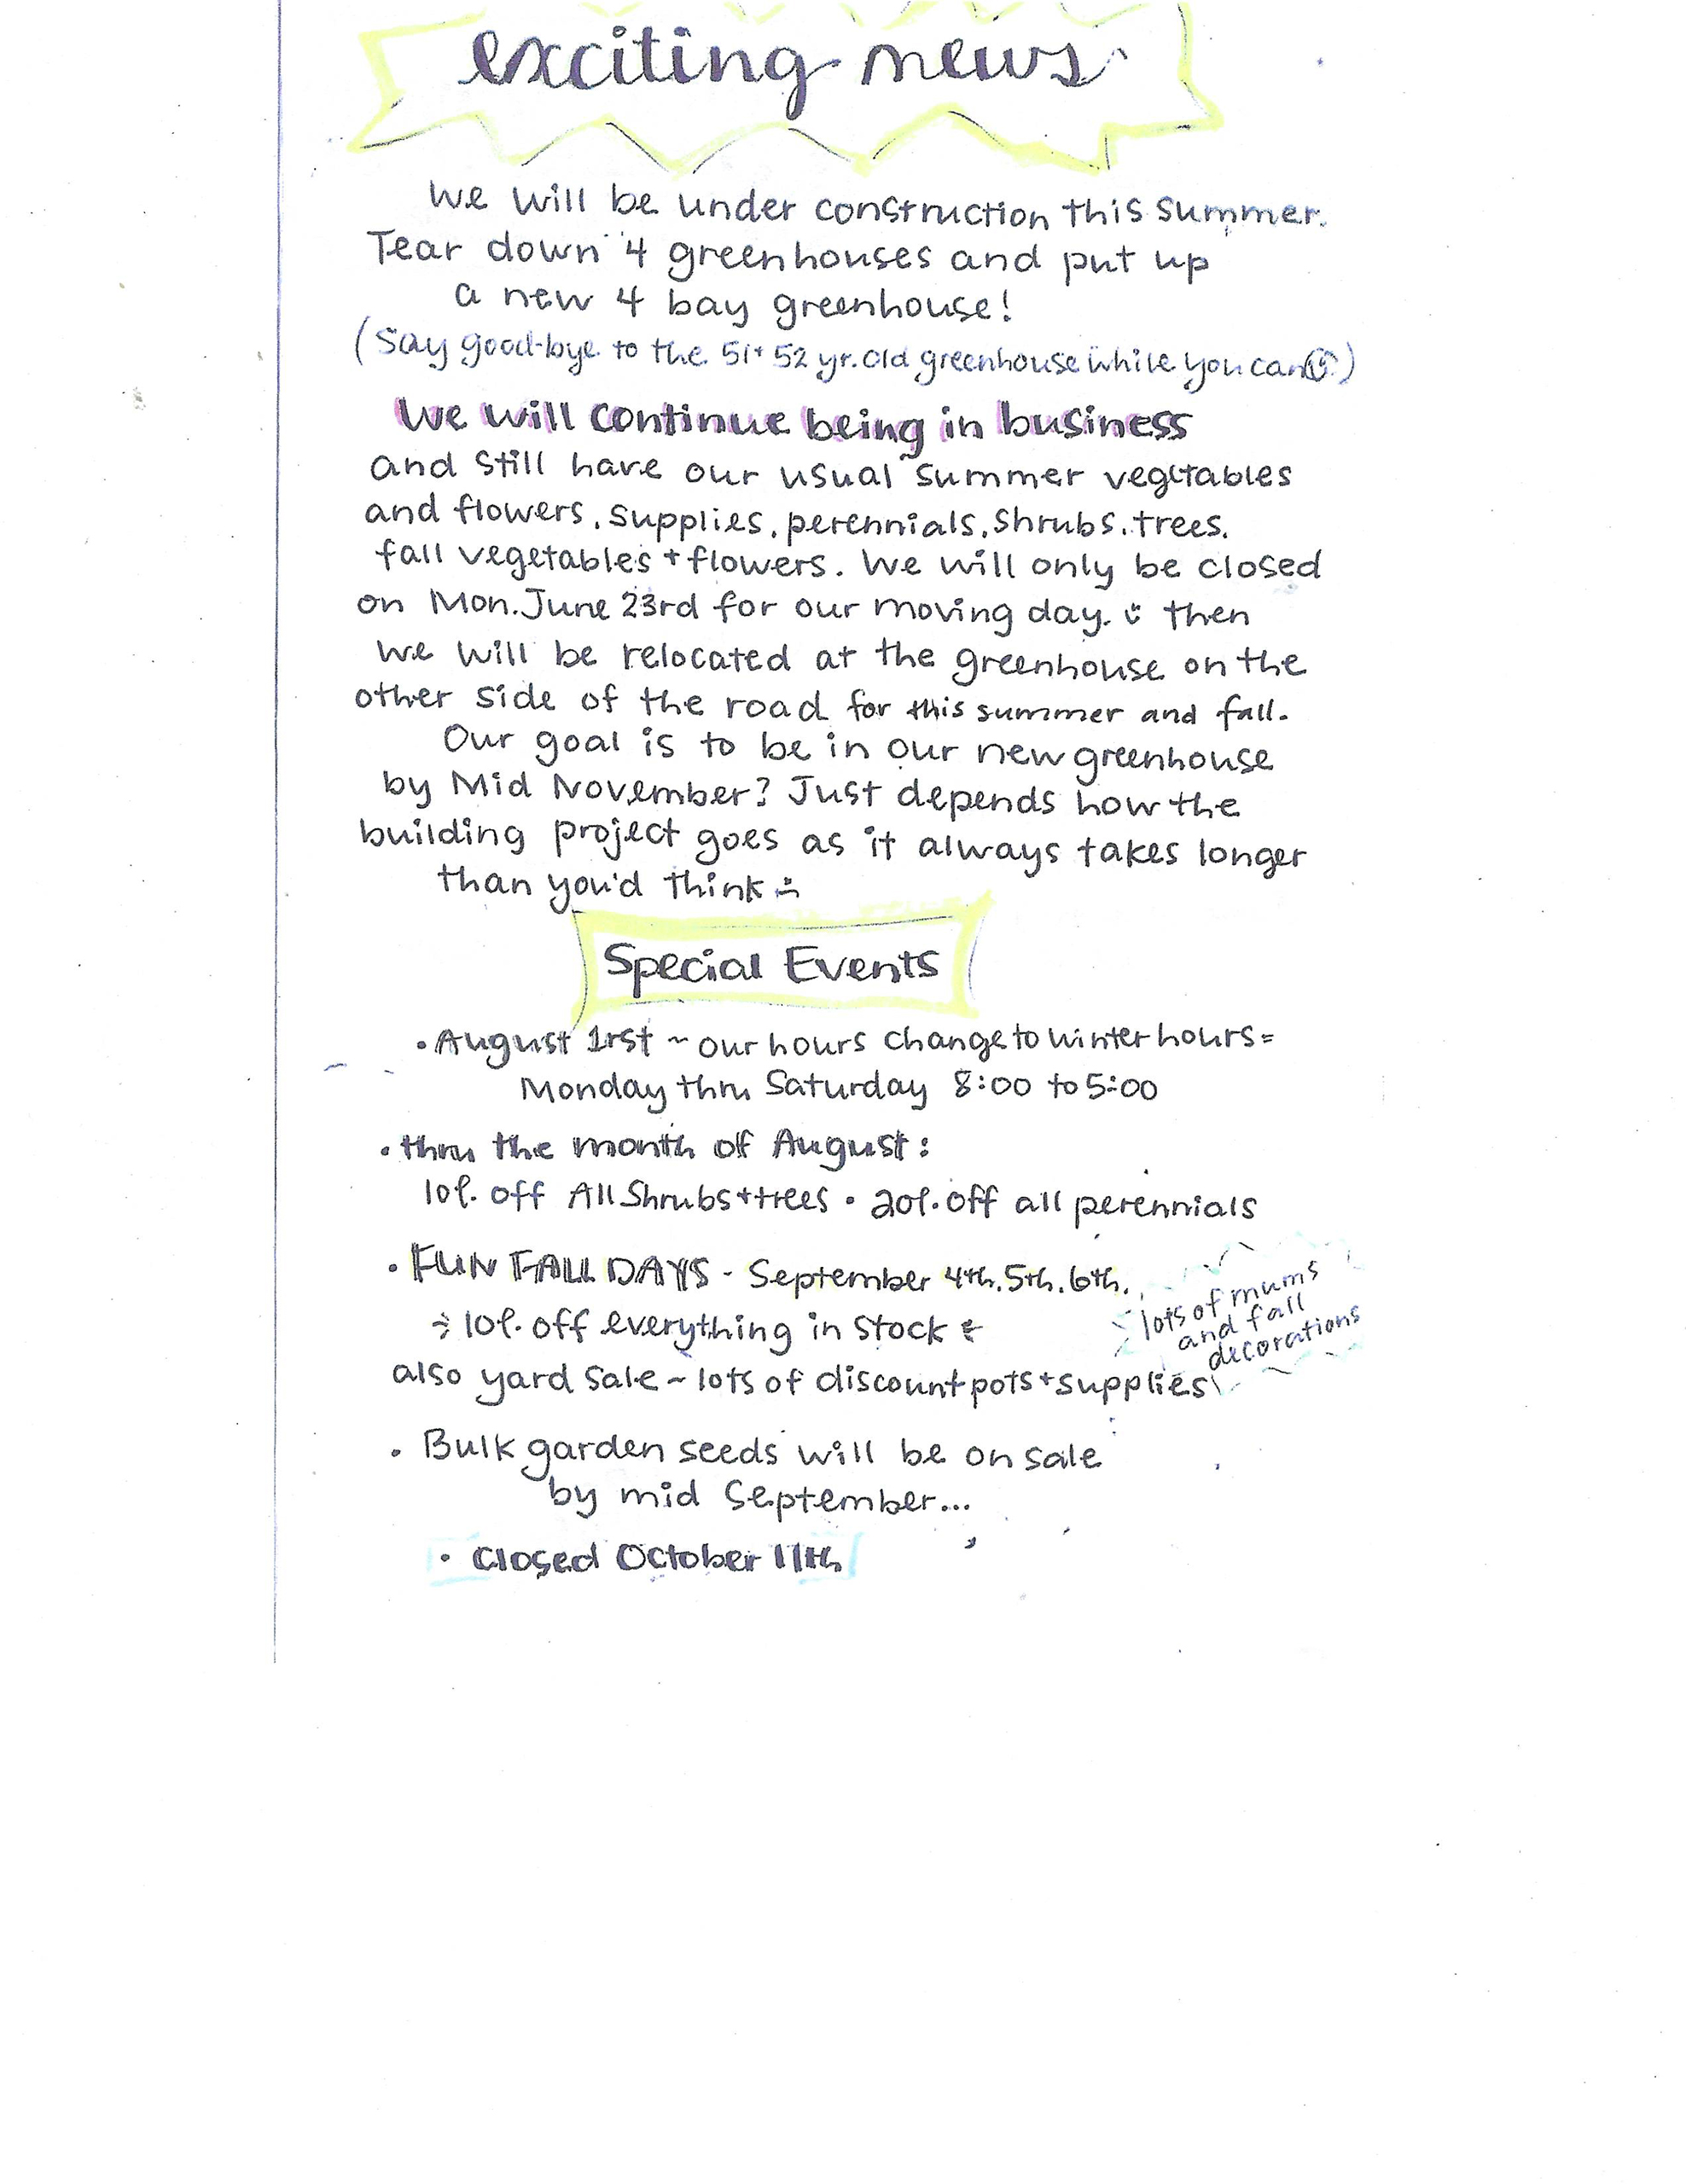 exciting news
We will be under construction this summer.
Tear down 4 greenhouses and put up
a new 4 bay greenhouse!
(Say good-bye to the 51+52 yr. old greenhouse while you can☺)
We will continue being in business
and still have our usual summer vegetables
and flowers, supplies, perennials, shrubs, trees,
fall vegetables + flowers. We will only be closed
on Mon. June 23rd for our moving day. ☺ then
we will be relocated at the greenhouse on the
other side of the road for this summer and fall.
Our goal is to be in our new greenhouse
by Mid November? Just depends how the
building project goes as it always takes longer
than you'd think ☺
Special Events
• August 1rst ~ our hours change to winter hours =
Monday thru Saturday 8:00 to 5:00
• thru the month of August:
10% off All Shrubs + trees • 20% off all perennials
• FUN FALL DAYS - September 4th, 5th, 6th.
10% off everything in stock
lots of mums
and fall
decorations
also yard sale ~ lots of discount pots + supplies
• Bulk garden seeds will be on sale
by mid September...
• Closed October 11th